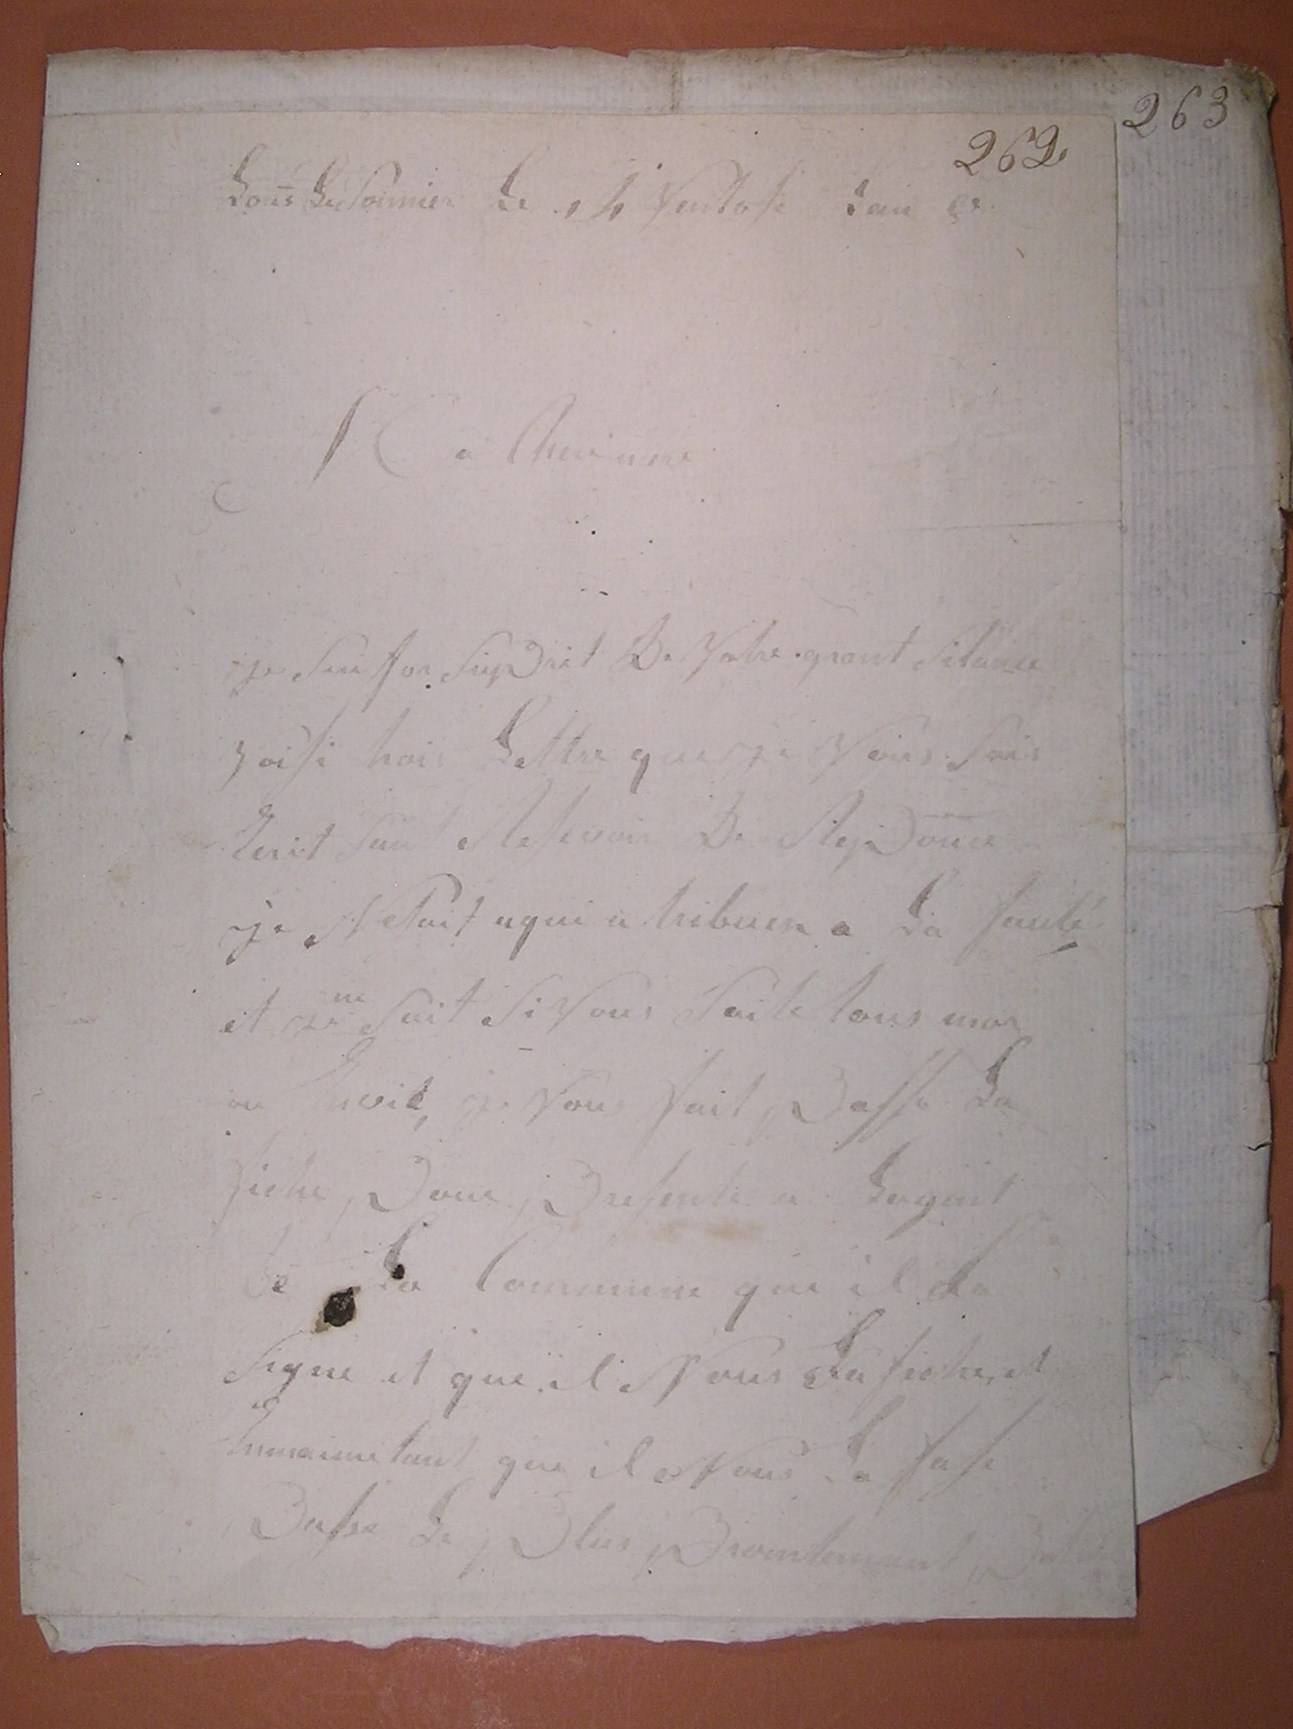 263
262
Lons Le Saunier Le 14 Ventose Lan
a
je sui for surprit De Votre grant silance
Voisi trois Lettre que je Vous
Ecrit sant Resevoir De Reponce
je Ne sait a qui a tribuer a La santé
et je ne sait si Vous tous mor
ou je Vous fait passe La
fiche pour presente a Lagant
De La Commune que il La
signe et que il Vous La fiche et
Enmaime tant que il Vous La fase
passe Le plus promtemant